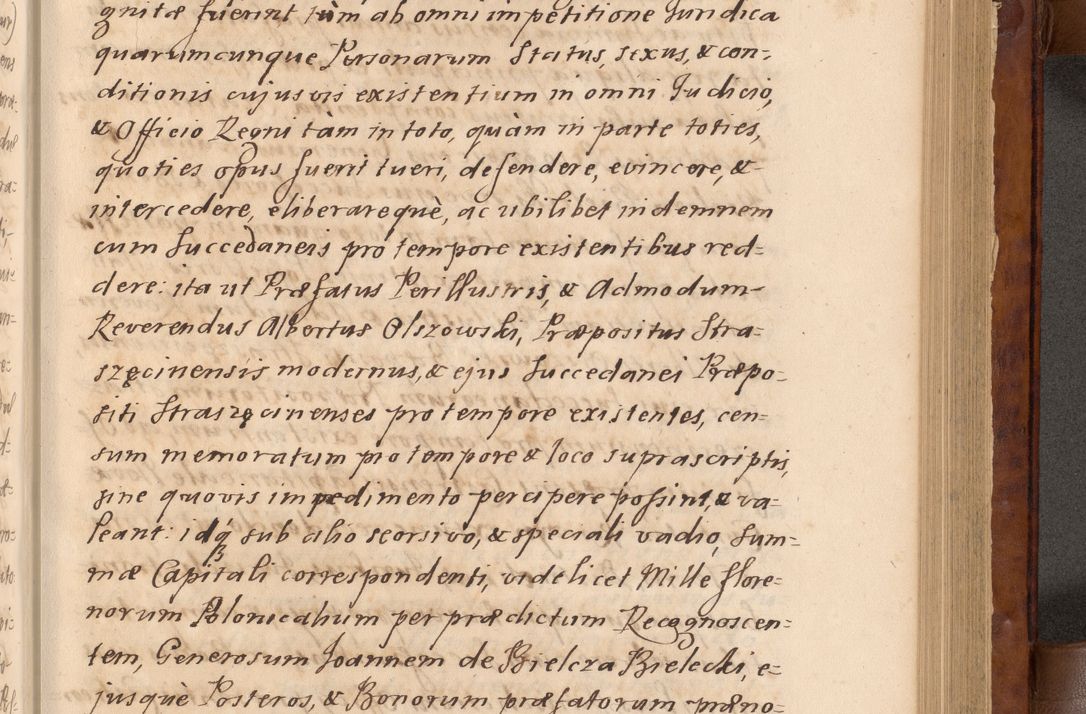 gnitæ fuerint tùm ab omni impetitione Juridica
quarumcunque Personarum Status, sexus, & con=
ditionis cujusvis existentium in omni Judicio,
& Officio Regni tàm in toto, quàm in parte toties,
quoties opus fuerit tueri, defendere, evincere, &
intercedere, eliberarequè, ac ubilibet indemnem
cum Succedaneis pro tempore existentibus red=
dere: ita ut Præfatus Perillustris, & Admodum
Reverendus Albertus Olszowski, Præpositus Stra=
szęcinensis modernus, & ejus Succedanei Præpo=
siti Straszęcinenses pro tempore existentes, cen=
sum memoratum pro tempore & loco suprascriptis,
sine quovis impedimento percipere possint, & va=
leant: idq́ₓ sub alio seorsivo, & speciali vadio, Sum=
mæ Capitali correspondenti, videlicet Mille flore=
norum Polonicalium per prædictum Recognoscen=
tem, Generosum Joannem de Bielcza Bielecki, e=
jusquè Posteros, & Bonorum præfatorum præno=